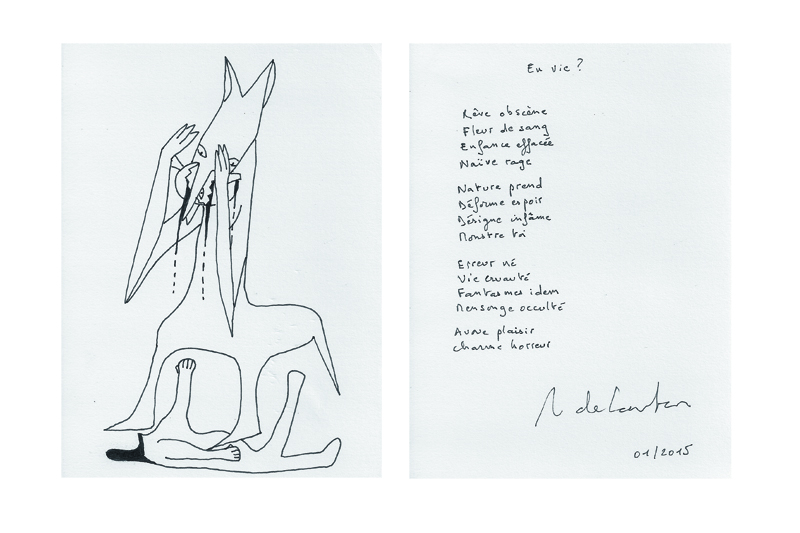 En vie ?
Rêve obscène
Fleur de sang
Enfance effacée
Naïve rage
Nature prend
Déforme espoir
Désigne infâme
Monstre toi
Erreur né
Vie cruauté
Fantasmes idem
Mensonge occulté
Avoue plaisir
charme horreur
de
01/2015